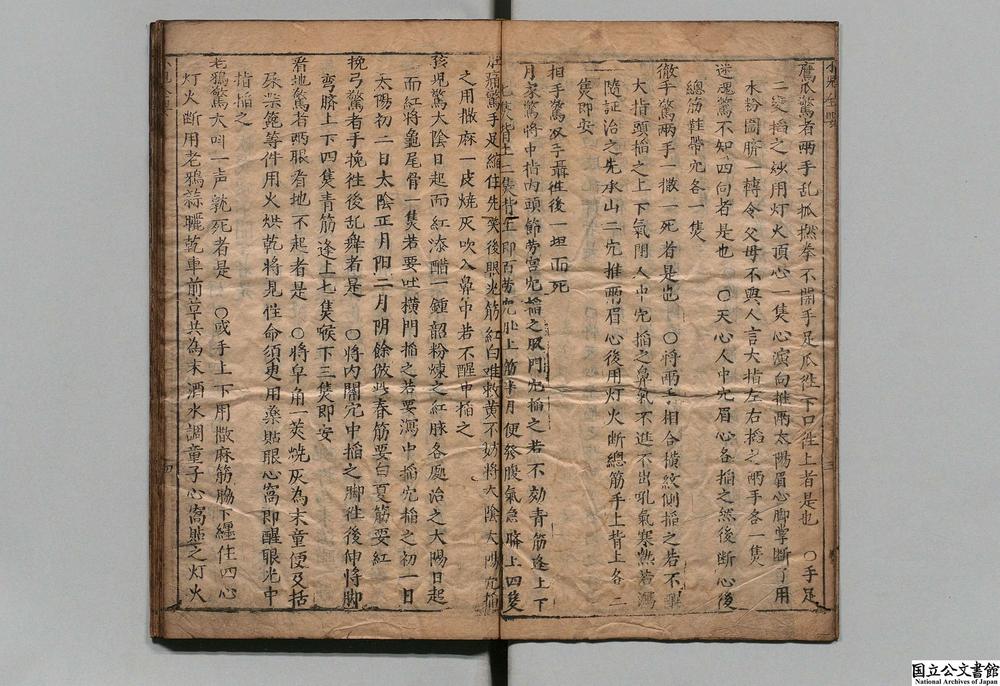 鷹瓜驚者兩手乱抓撚拳不開手足瓜徃下口徃上者是也 〇手足
二變掐之妙用灯火頂心一隻心演向推兩太陽眉心脚掌斷了用
水粉圖臍一轉令父母不與人言大指左右掐之兩手各一隻
迷魂驚不知四向者是也 〇天心人中宂眉心各掐之然後斷心後
總筋鞋帶宂各一隻
撒手驚兩手一撒一死者是也 〇將兩手相合横紋側掐之若不
大指頭掐之上下氣閉人中宂掐之鼻氣不進不出吼氣寒熱若瀉
隨証治之先承山二宂推兩眉心後用灯火断總筋手上背上各二
隻即安
相手驚双手攝徃後一坦而死
月家驚將中指内頭節劳宮宂掐之版門宂掐之若不効青筋逢上下
七隻背上二隻背上即百劳宂肚上筋半月便發腹氣急臍上四隻
肚痛驚手足縮住先笑後眼光筋紅白难救黄不妨將太陰太陽宂掐
之用撒麻一皮燒灰吹入鼻中若不醒中掐之
孩児驚大陰日起而紅添醋一鍾韶粉煉之紅脉各處治之大陽日起
而紅將龜尾骨一隻若要吐横門掐之若要瀉中掐宂掐之初一日
太陽初一日太陰正月阳二月阴餘倣此春筋要白夏筋要紅
挽弓驚者手挽徃後乱舞者是 〇將内關宂中掐之脚徃後伸將脚
弯臍上下四隻青筋逢上七隻喉下三隻即安
看地驚者兩眼看地不起者是 〇將皁角一莢燒灰為末童便及括
屎柴篦等件用火烘乾將見性命須更用藥貼眼心窩即醒眼光中
指掐之
老鴉驚大叫一声就死者是 〇或手上下用撒麻筋脇下纏住四心
灯火断用老鴉蒜曬乾車前草共為末酒水調童子心窩貼之灯火
国立公文書館
National Archives of Japan